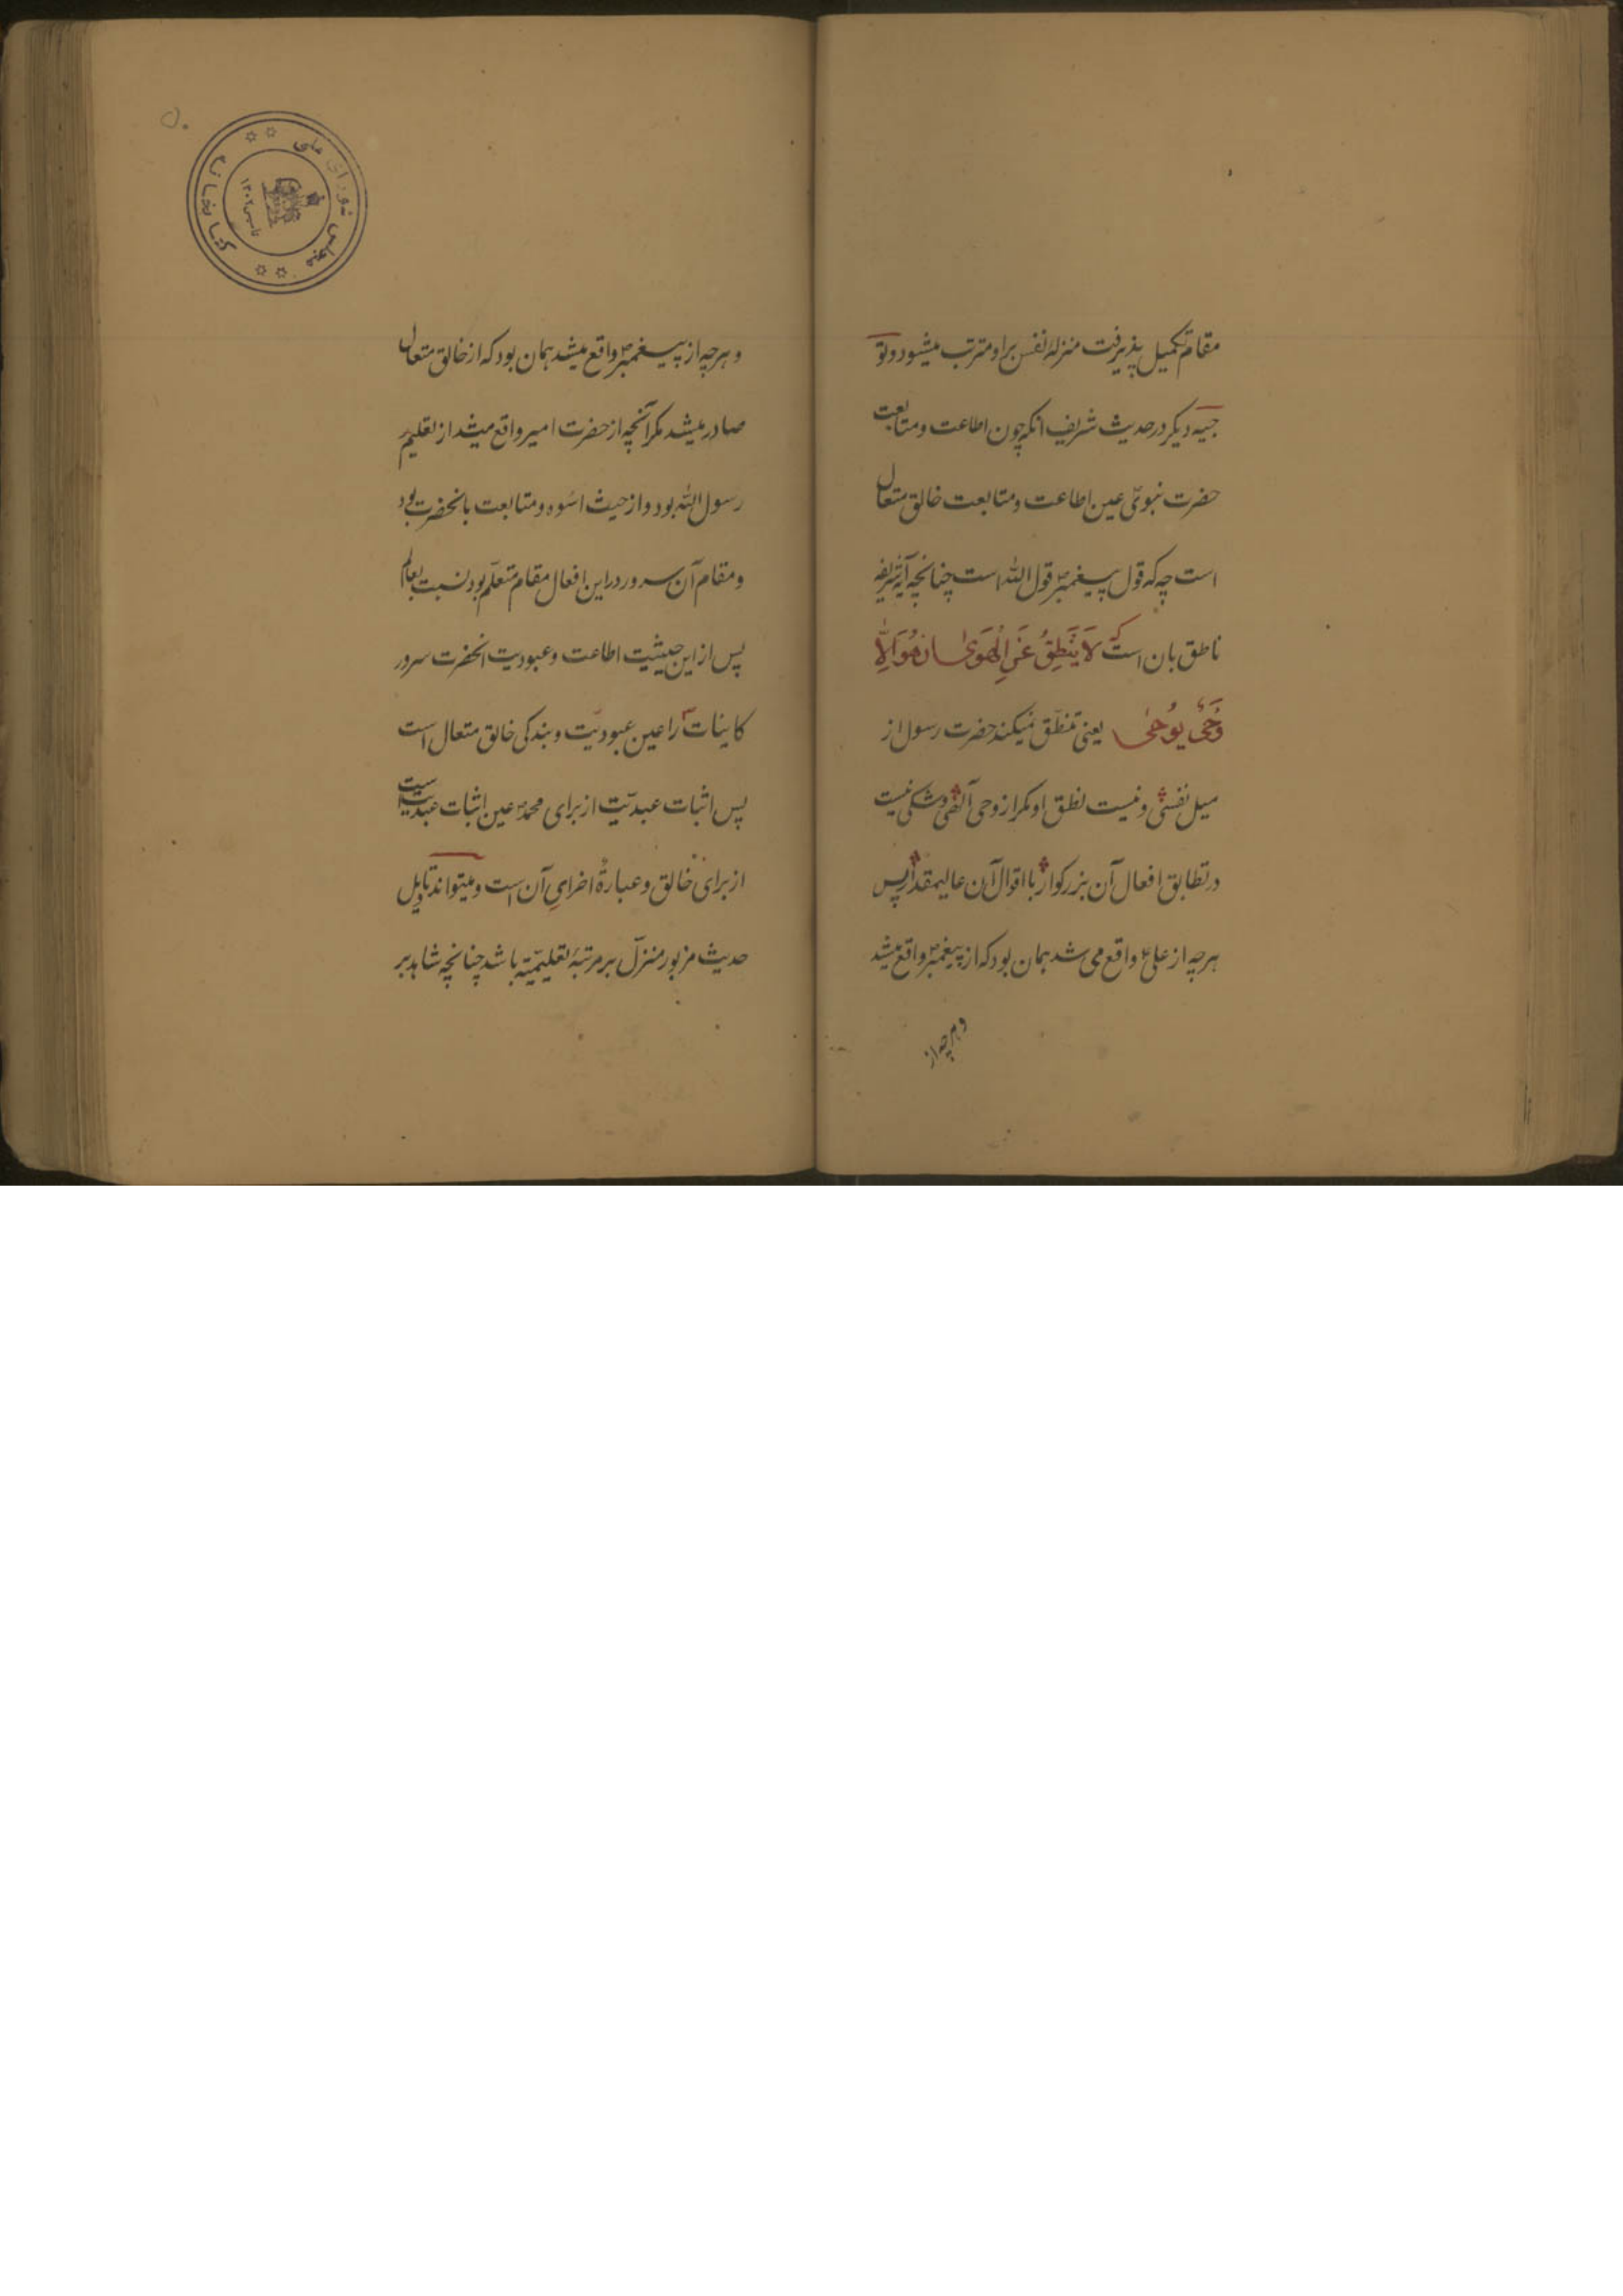 مقام تکمیل پذیرفت منزلهٔ نفس براو مترتب میشود و تو
جیه دیکر در حدیث شریف انکه چون اطاعت و متابعت
حضرت نبوی عین اطاعت و متابعت خالق متعال
است چه که قول پیغمبرؐ قول الله است چنانچه آیه شریفه
ناطق بان است که لَا یَنْطِقُ عَنِ الْهَویٰ ان هُوَ اِلّا
وَحْیٌ یُوحٰی یعنی تنطّق نمیکند حضرت رسول از
میل نفس و نیست نطق او مکر از وحی آلهی و شکی نیست
در تطابق افعال آن بزرکوار با اقوال آن عالیمقدار پس
هرچه از علیؑ واقع می شد همان بود که از پیغمبرؐ واقع میشد
و هرچه از
۵۰
کتابخانه مجلس شورای ملی
تاسیس ۱۳۰۲
و هرچه از پیغمبرؐ واقع میشد همان بود که از خالق متعال
صادر میشد مکر آنچه از حضرت امیر واقع میشد از تعلیم
رسول الله بود و از حیث اسوه و متابعت بانحضرت بود
و مقام آن سرور در این افعال مقام متعلّم بود نسبت بعالم
پس از این حیثیت اطاعت و عبودیت انحضرت سرور
کاینات را عین عبودیّت و بندکی خالق متعال است
پس اثبات عبدیّت از برای محمدؐ عین اثبات عبدیت است
از برای خالق و عبارهٔ اخرای آن است و میتواند تاویل
حدیث مزبور منزل بر مرتبهٔ تعلیمیّه باشد چنانچه شاهد بر